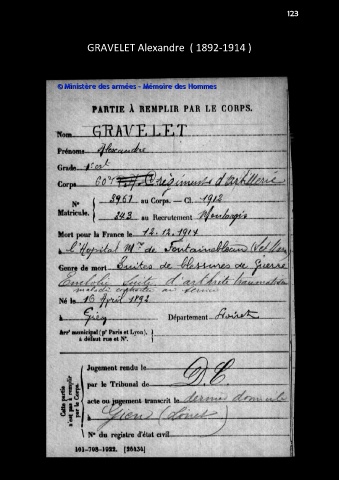 123
GRAVELET Alexandre ( 1892-1914 )
© Ministère des armées - Mémoire des Hommes
PARTIE À REMPLIR PAR LE CORPS.
Nom GRAVELET
Prénoms Alexandre
Grade
Corps régiment d'artillerie
N° Matricule. 3961 au Corps. — Cl. 1912
343 au Recrutement Montargis
Mort pour la France le 12.12.1914
à l'Hopital Mre de Fontainebleau
Genre de mort Suites de blessures de guerre
Embolie suite d'arthrite traumatique
maladie contractée au service
Né le 16 Avril 1892
à Gien Département Loiret
Arrt municipal (pr Paris et Lyon),
à défaut rue et N°.
Cette partie n'est pas à remplir par le Corps.
Jugement rendu le
par le Tribunal de D.C.
acte ou jugement transcrit le dernier domicile
à Gien (Loiret)
N° du registre d'état civil
101-708-1922. [26434]